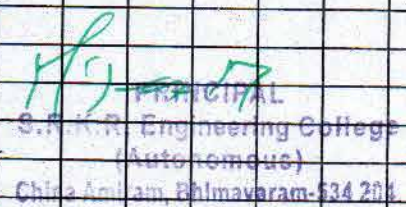 PRINCIPAL
S.R.K.R. Engineering College
(Autonomous)
China Amiram, Bhimavaram-534 204